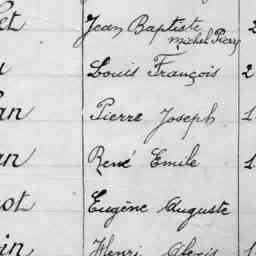 Jean Baptiste 2
Michel Pierry
Louis François 2
Pierre Joseph 1
René Emile 1
ot Eugène Auguste
in Henri Alexis 1